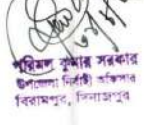 পরিমল কুমার সরকার
উপজেলা নির্বাহী অফিসার
বিরামপুর, দিনাজপুর